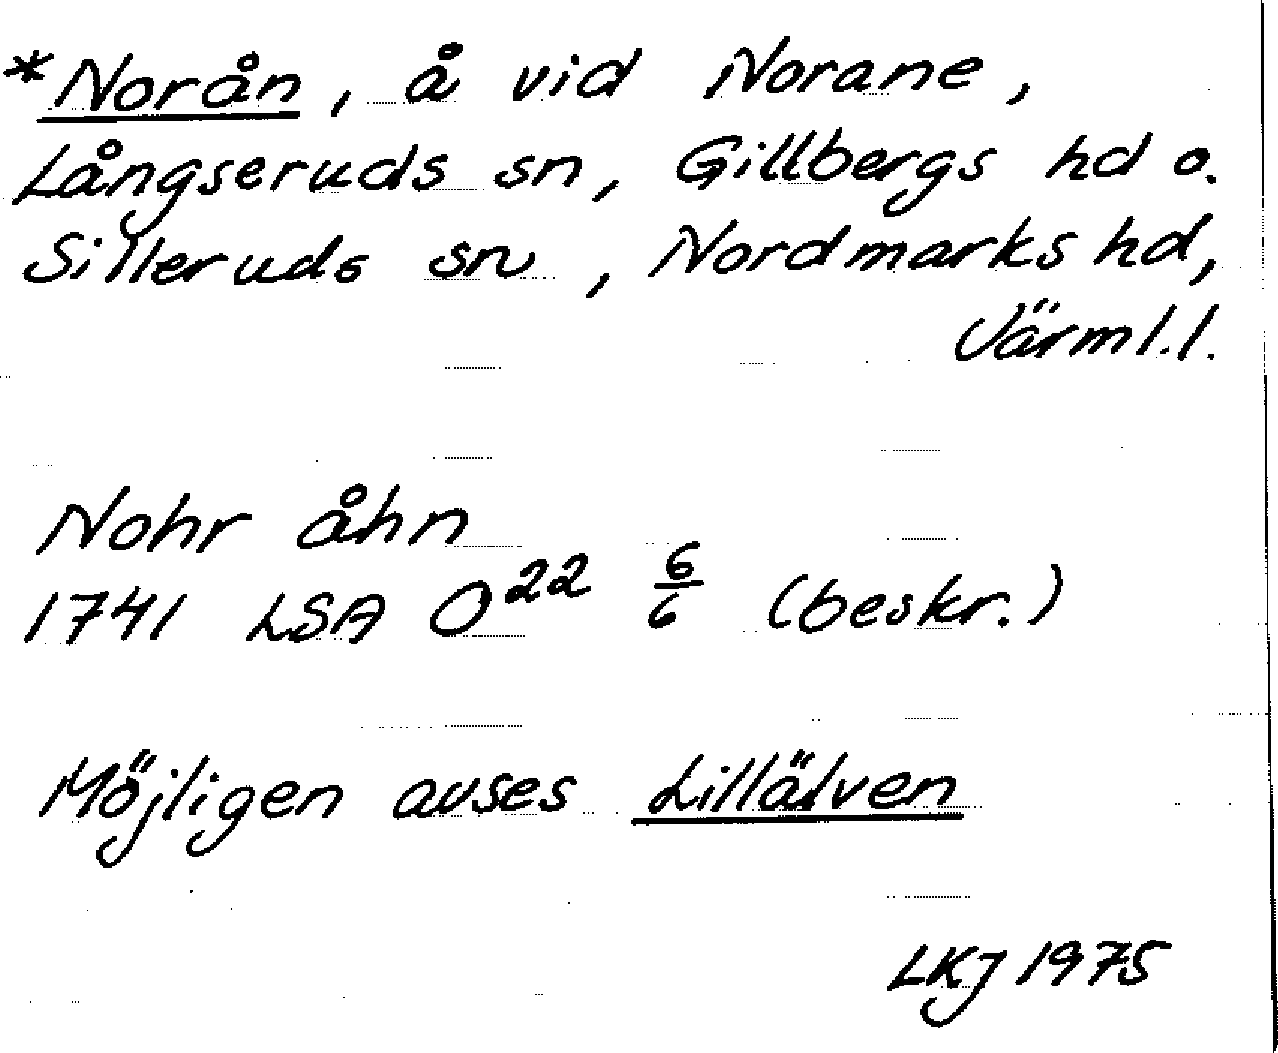 *Norån, å vid Norane,
Långseruds sn, Gillbergs hd o.
Silleruds sn, Nordmarks hd,
Värml.l.
Nohr åhn
1741 LSA O²² 6/6 (beskr.)
Möjligen avses Lillälven
LKJ 1975